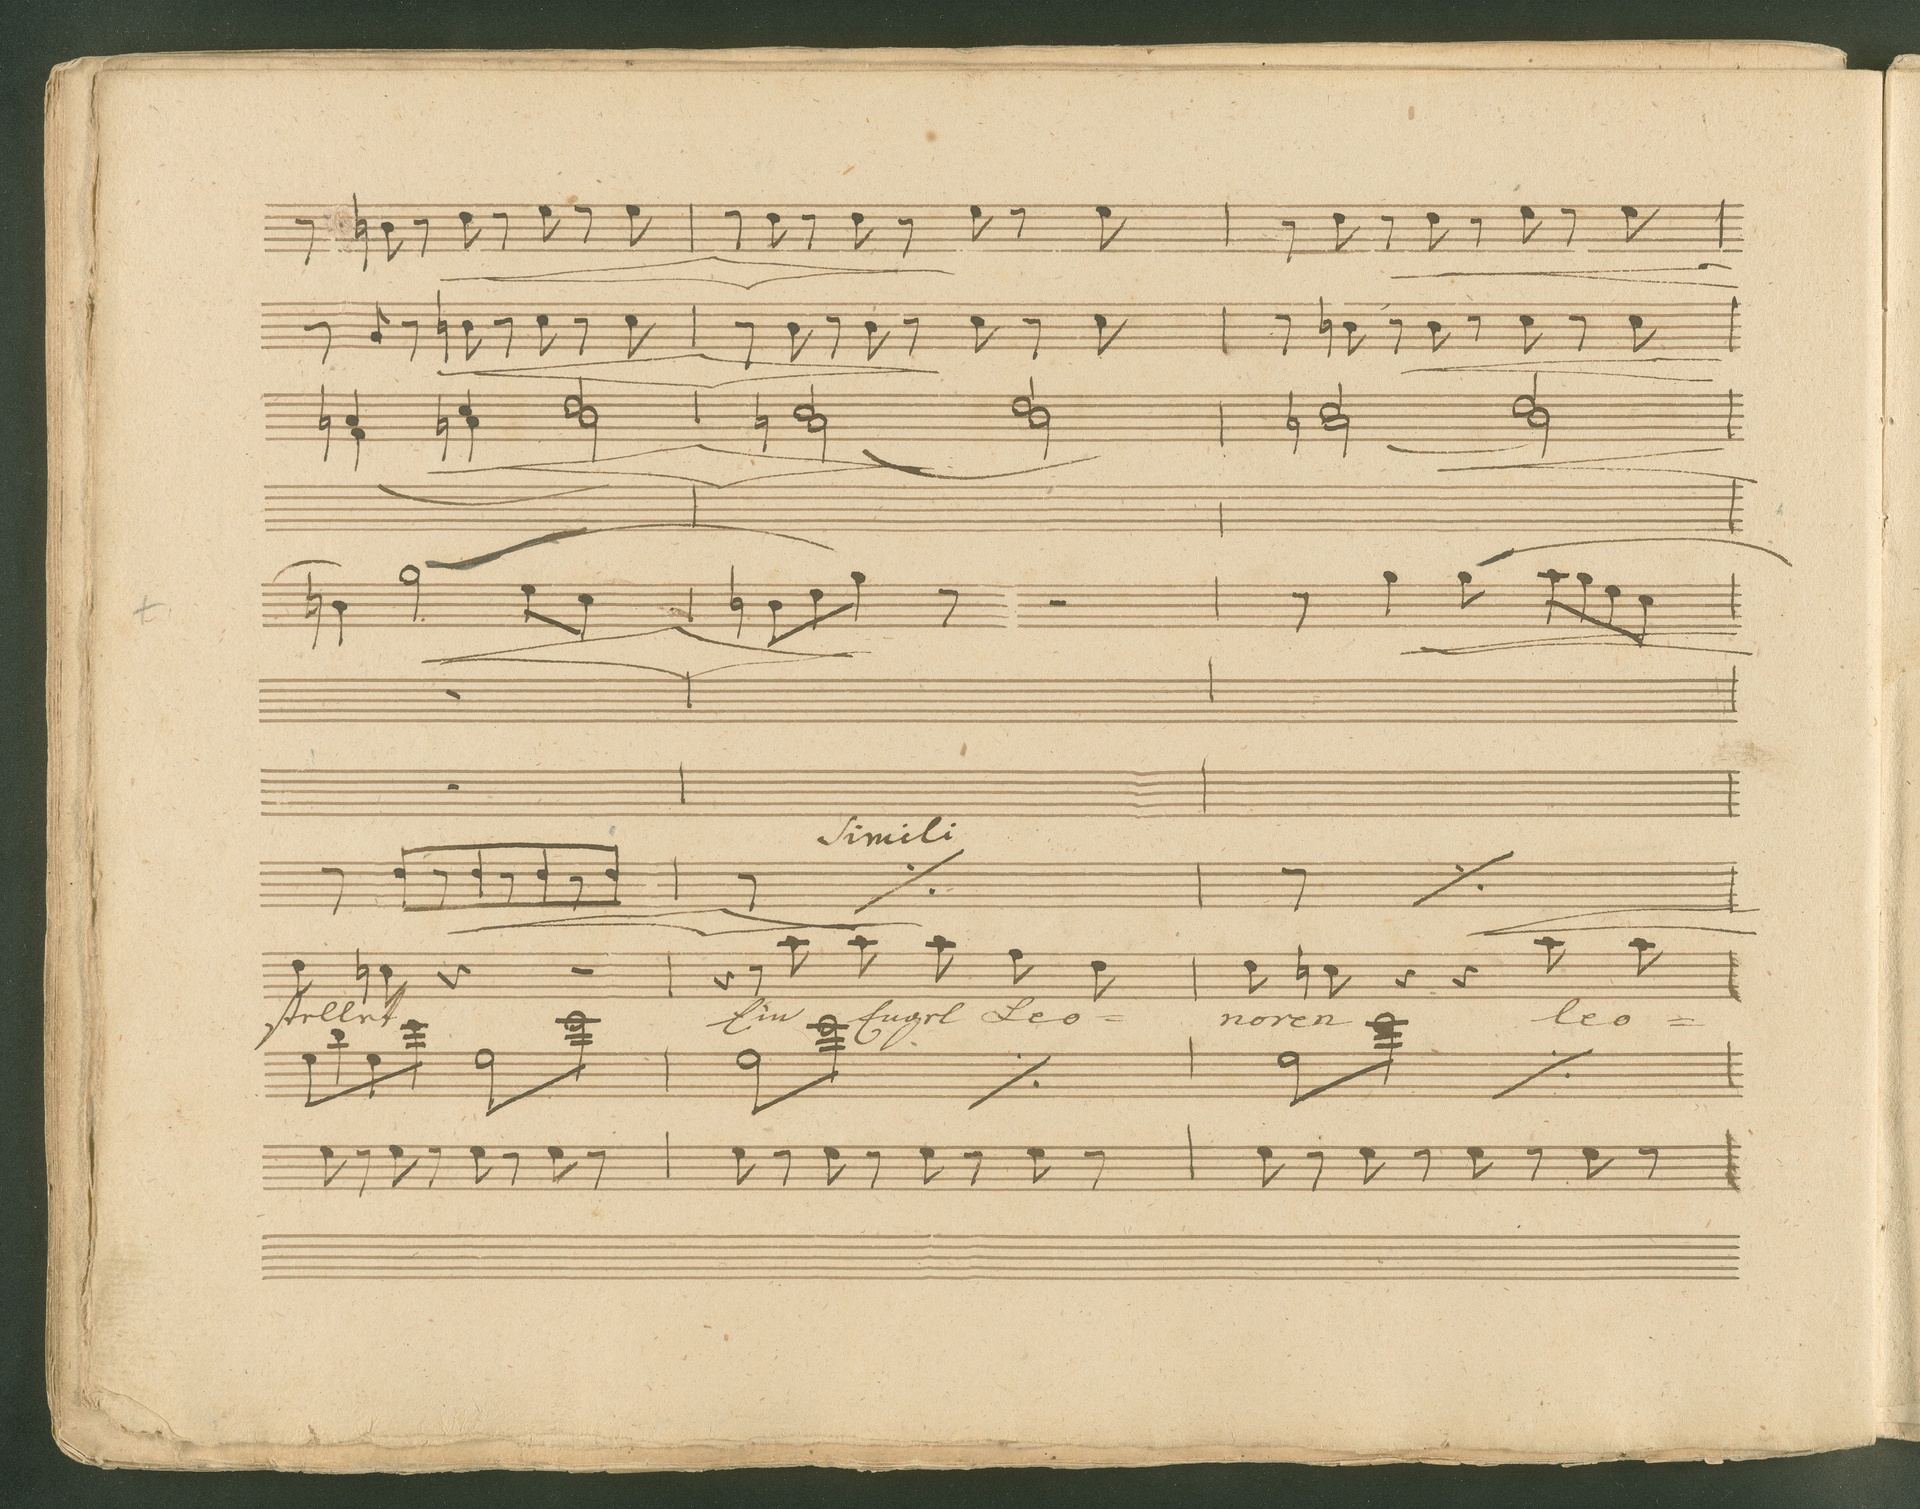 Simili
stellet Ein Engel Leo= noren leo =